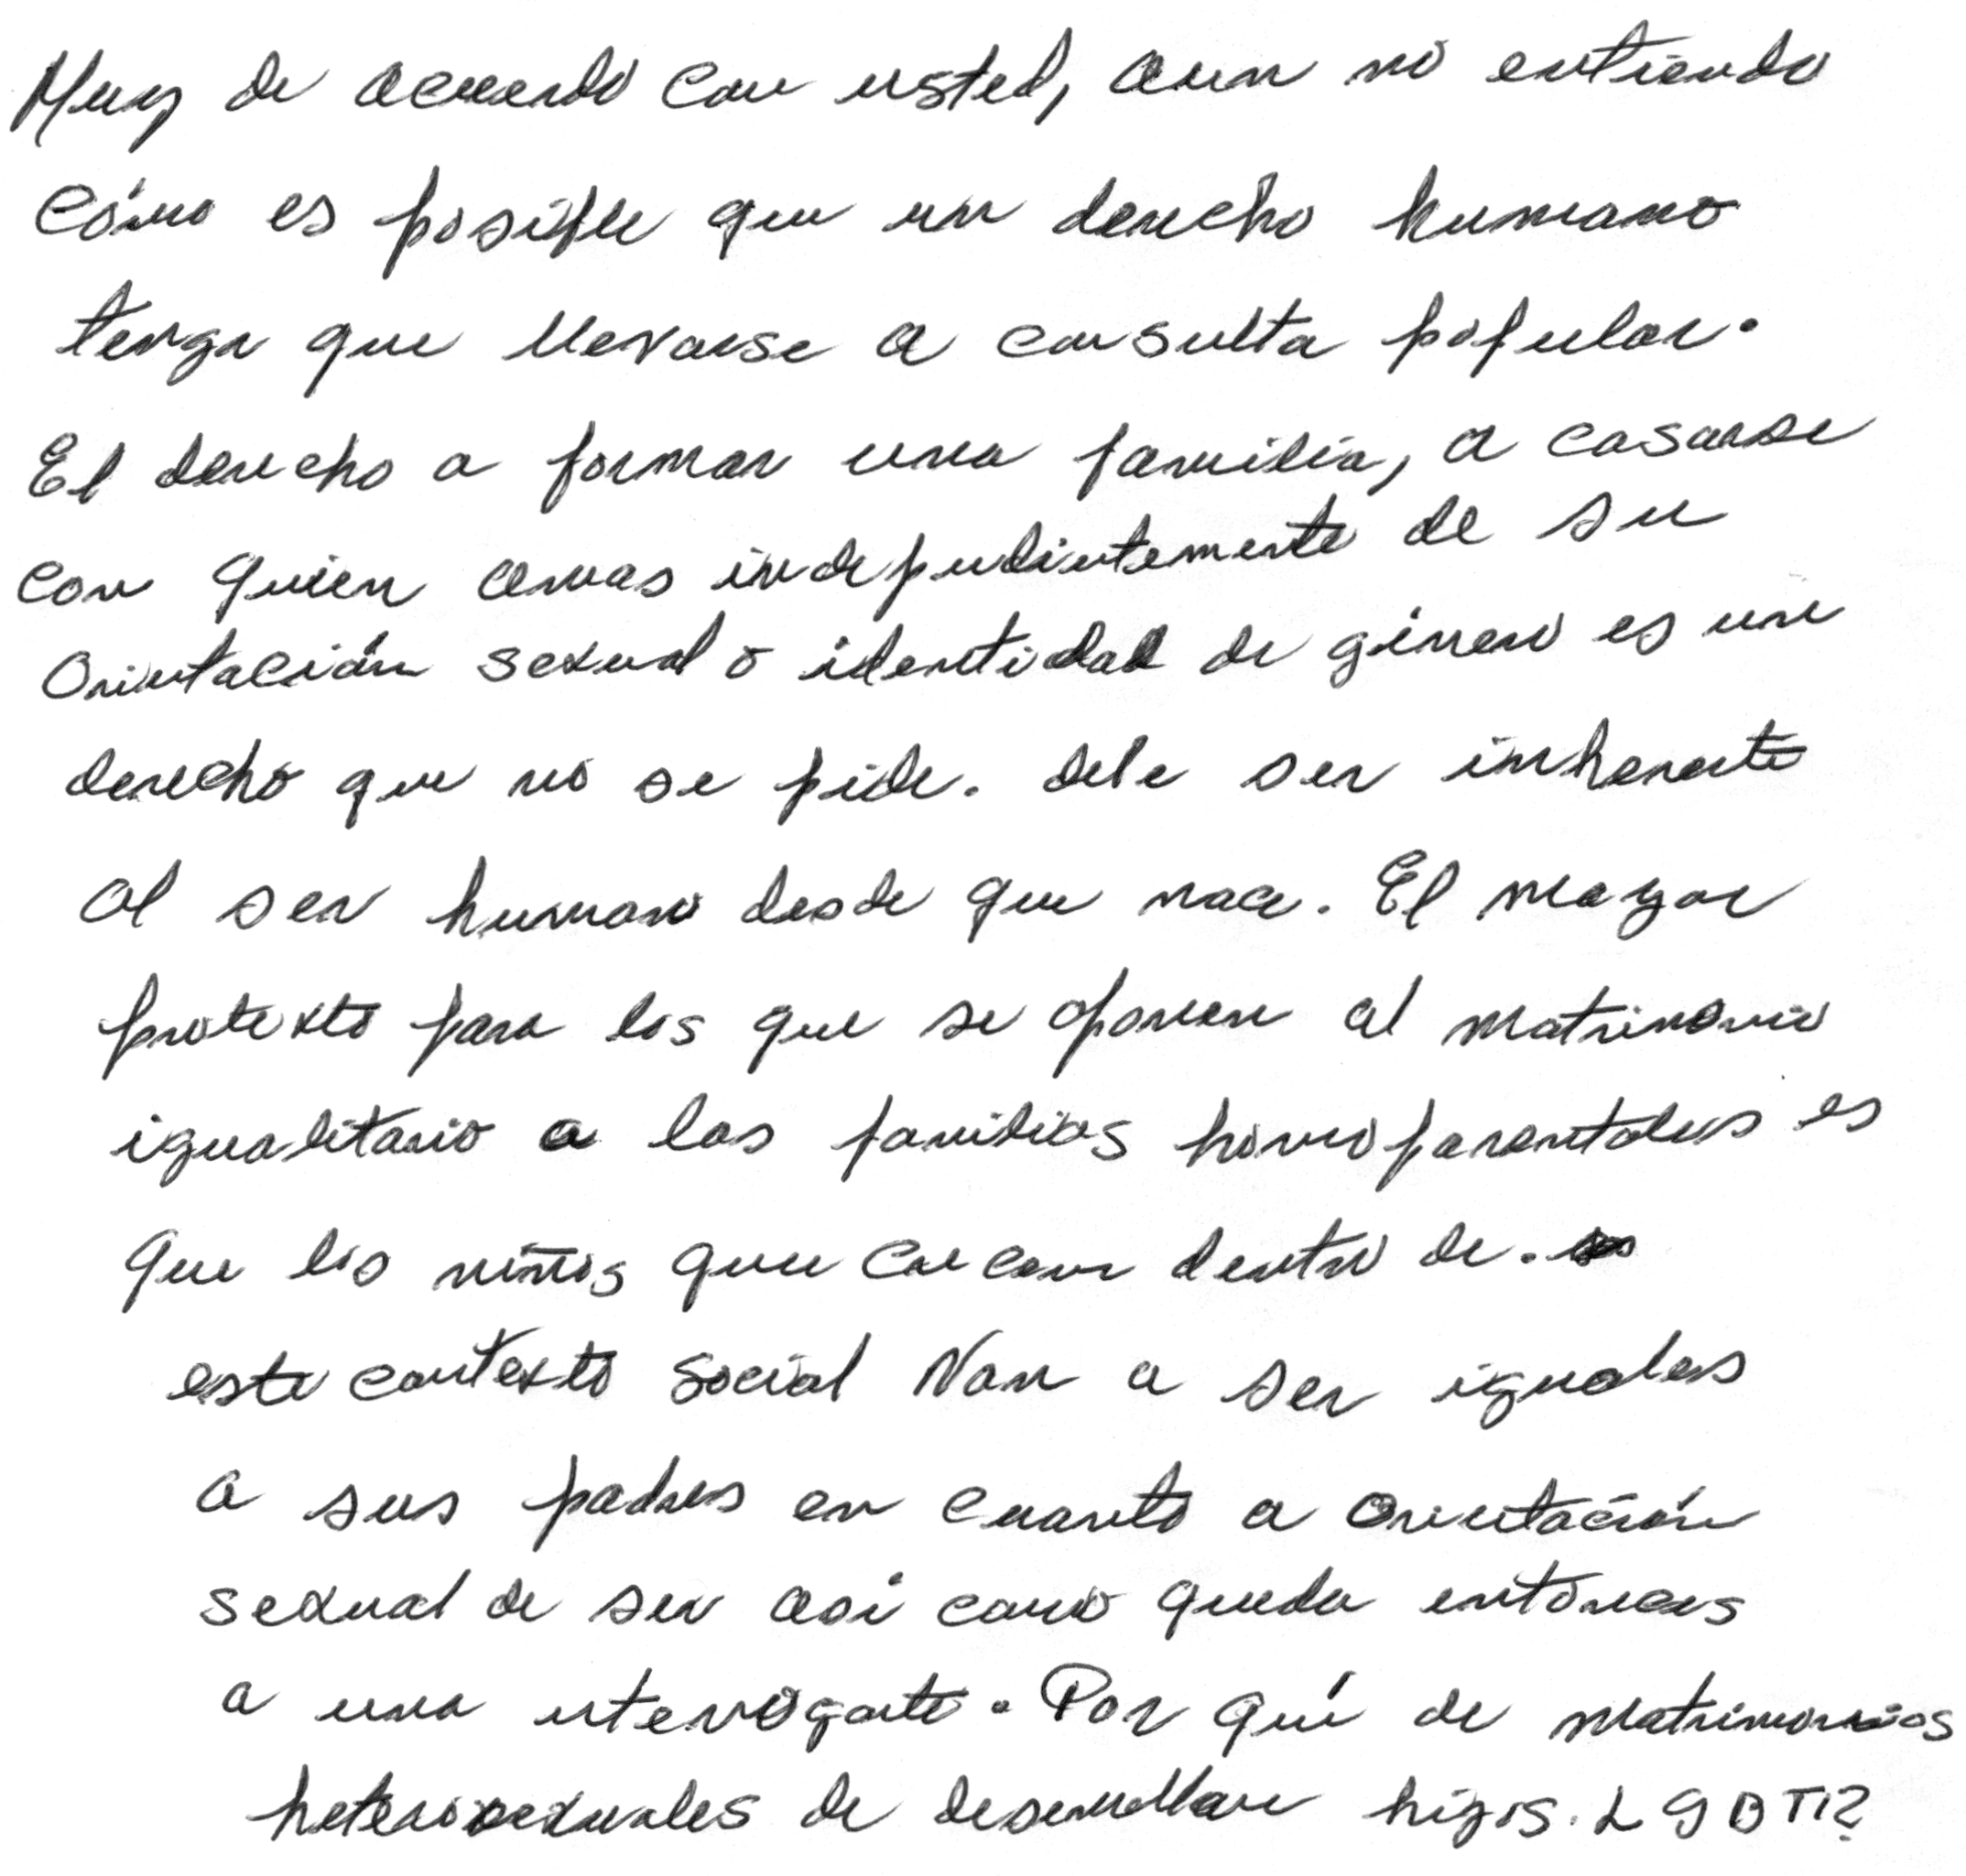 Muy de acuerdo con usted, aun no entiendo
cómo es posible que un derecho humano
tenga que llevarse a consulta popular.
El derecho a formar una familia, a casarse
con quien amas independientemente de su
orientación sexual o identidad de género es un
derecho que no se pide. debe ser inherente
al ser humano desde que nace. El mayor
protexto para los que se oponen al matrimonio
igualitario a las familias homoparentales es
que los niños que crecen dentro de.
este contexto social Van a ser iguales
a sus padres en cuanto a orientación
sexual de ser asi como queda entonces
a una interrogante. Por qué de matrimonios
heterosexuales de desarrollan hijos. LGBTI?